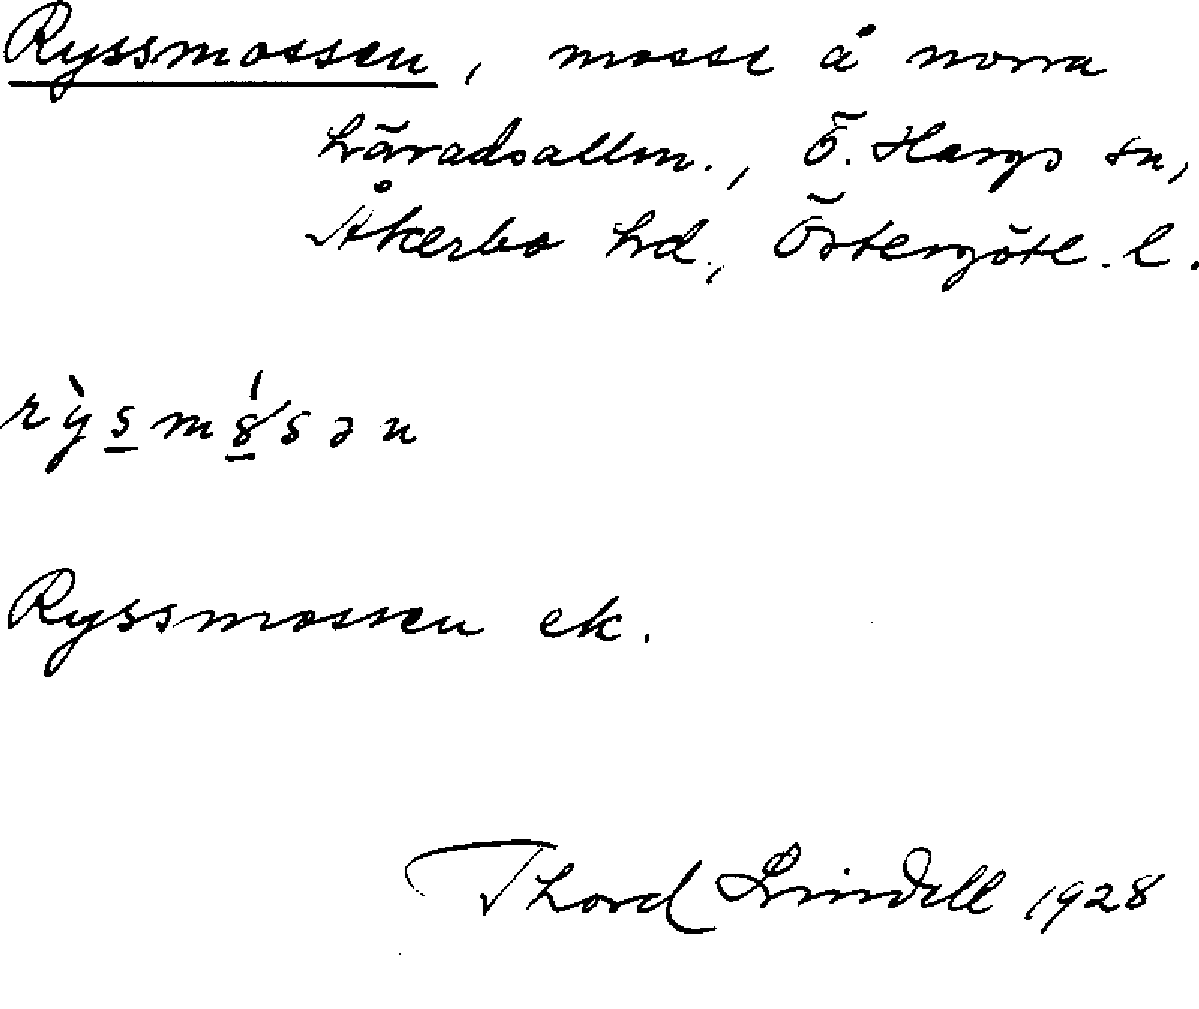 Ryssmossen, mosse å norra
häradsallm., Ö. Hargs sn,
Åkerbo hd., Östergötl. l.
Ryssmossen ek.
Thord Lindell 1928